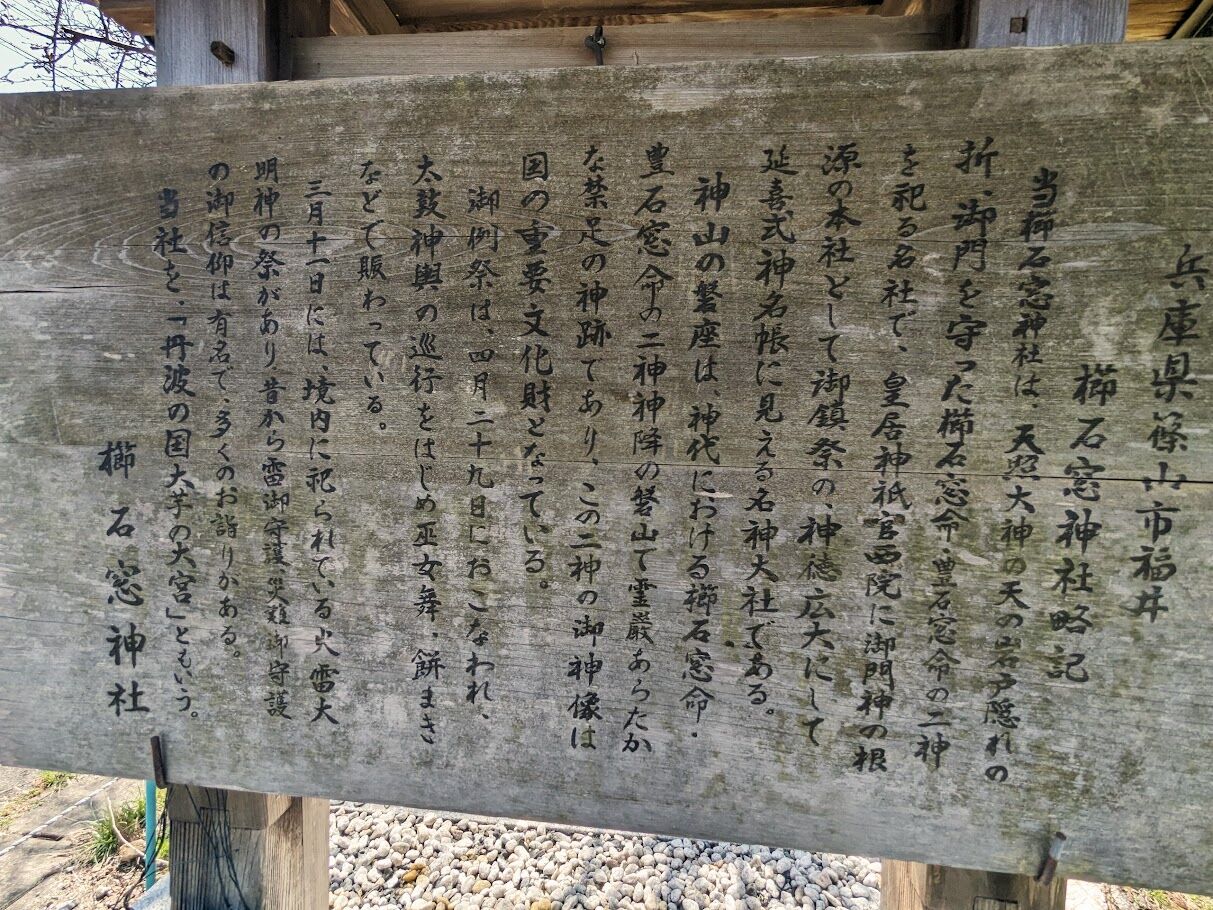 兵庫県篠山市福井
櫛石窓神社略記
当櫛石窓神社は、天照大神の天の岩戸隠れの
折、御門を守った櫛石窓命・豊石窓命の二神
を祀る名社で、皇居神祇官西院に御門神の根
源の本社として御鎮祭の、神徳広大にして
延喜式神名帳に見える名神大社である。
神山の磐座は、神代における櫛石窓命・
豊石窓命の二神神降の磐山て霊巌あらたか
な禁足の神跡であり、この二神の御神像は
国の重要文化財となっている。
御例祭は、四月二十九日におこなわれ、
太鼓神輿の巡行をはじめ巫女舞、餅まき
などで賑わっている。
三月十一日には、境内に祀られている火雷大
明神の祭があり、昔から雷御守護災難御守護
の御信仰は有名で、多くのお詣りがある。
当社を、「丹波の国大芋の大宮」ともいう。
櫛石窓神社